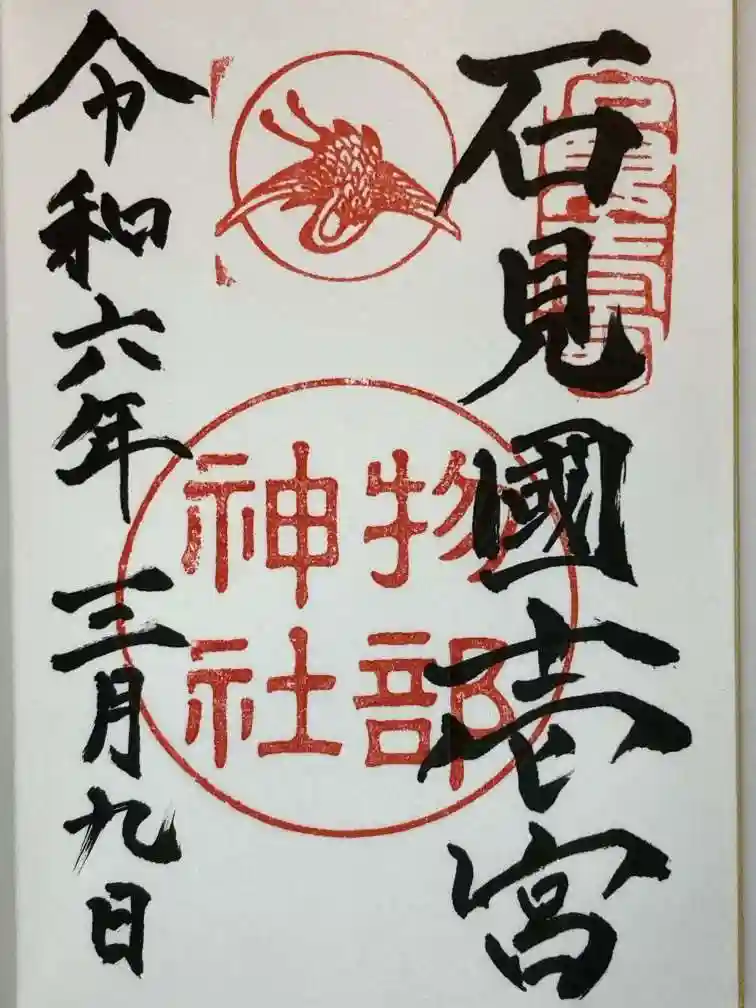 石見國壱宮
物部
神社
令和六年 三月九日